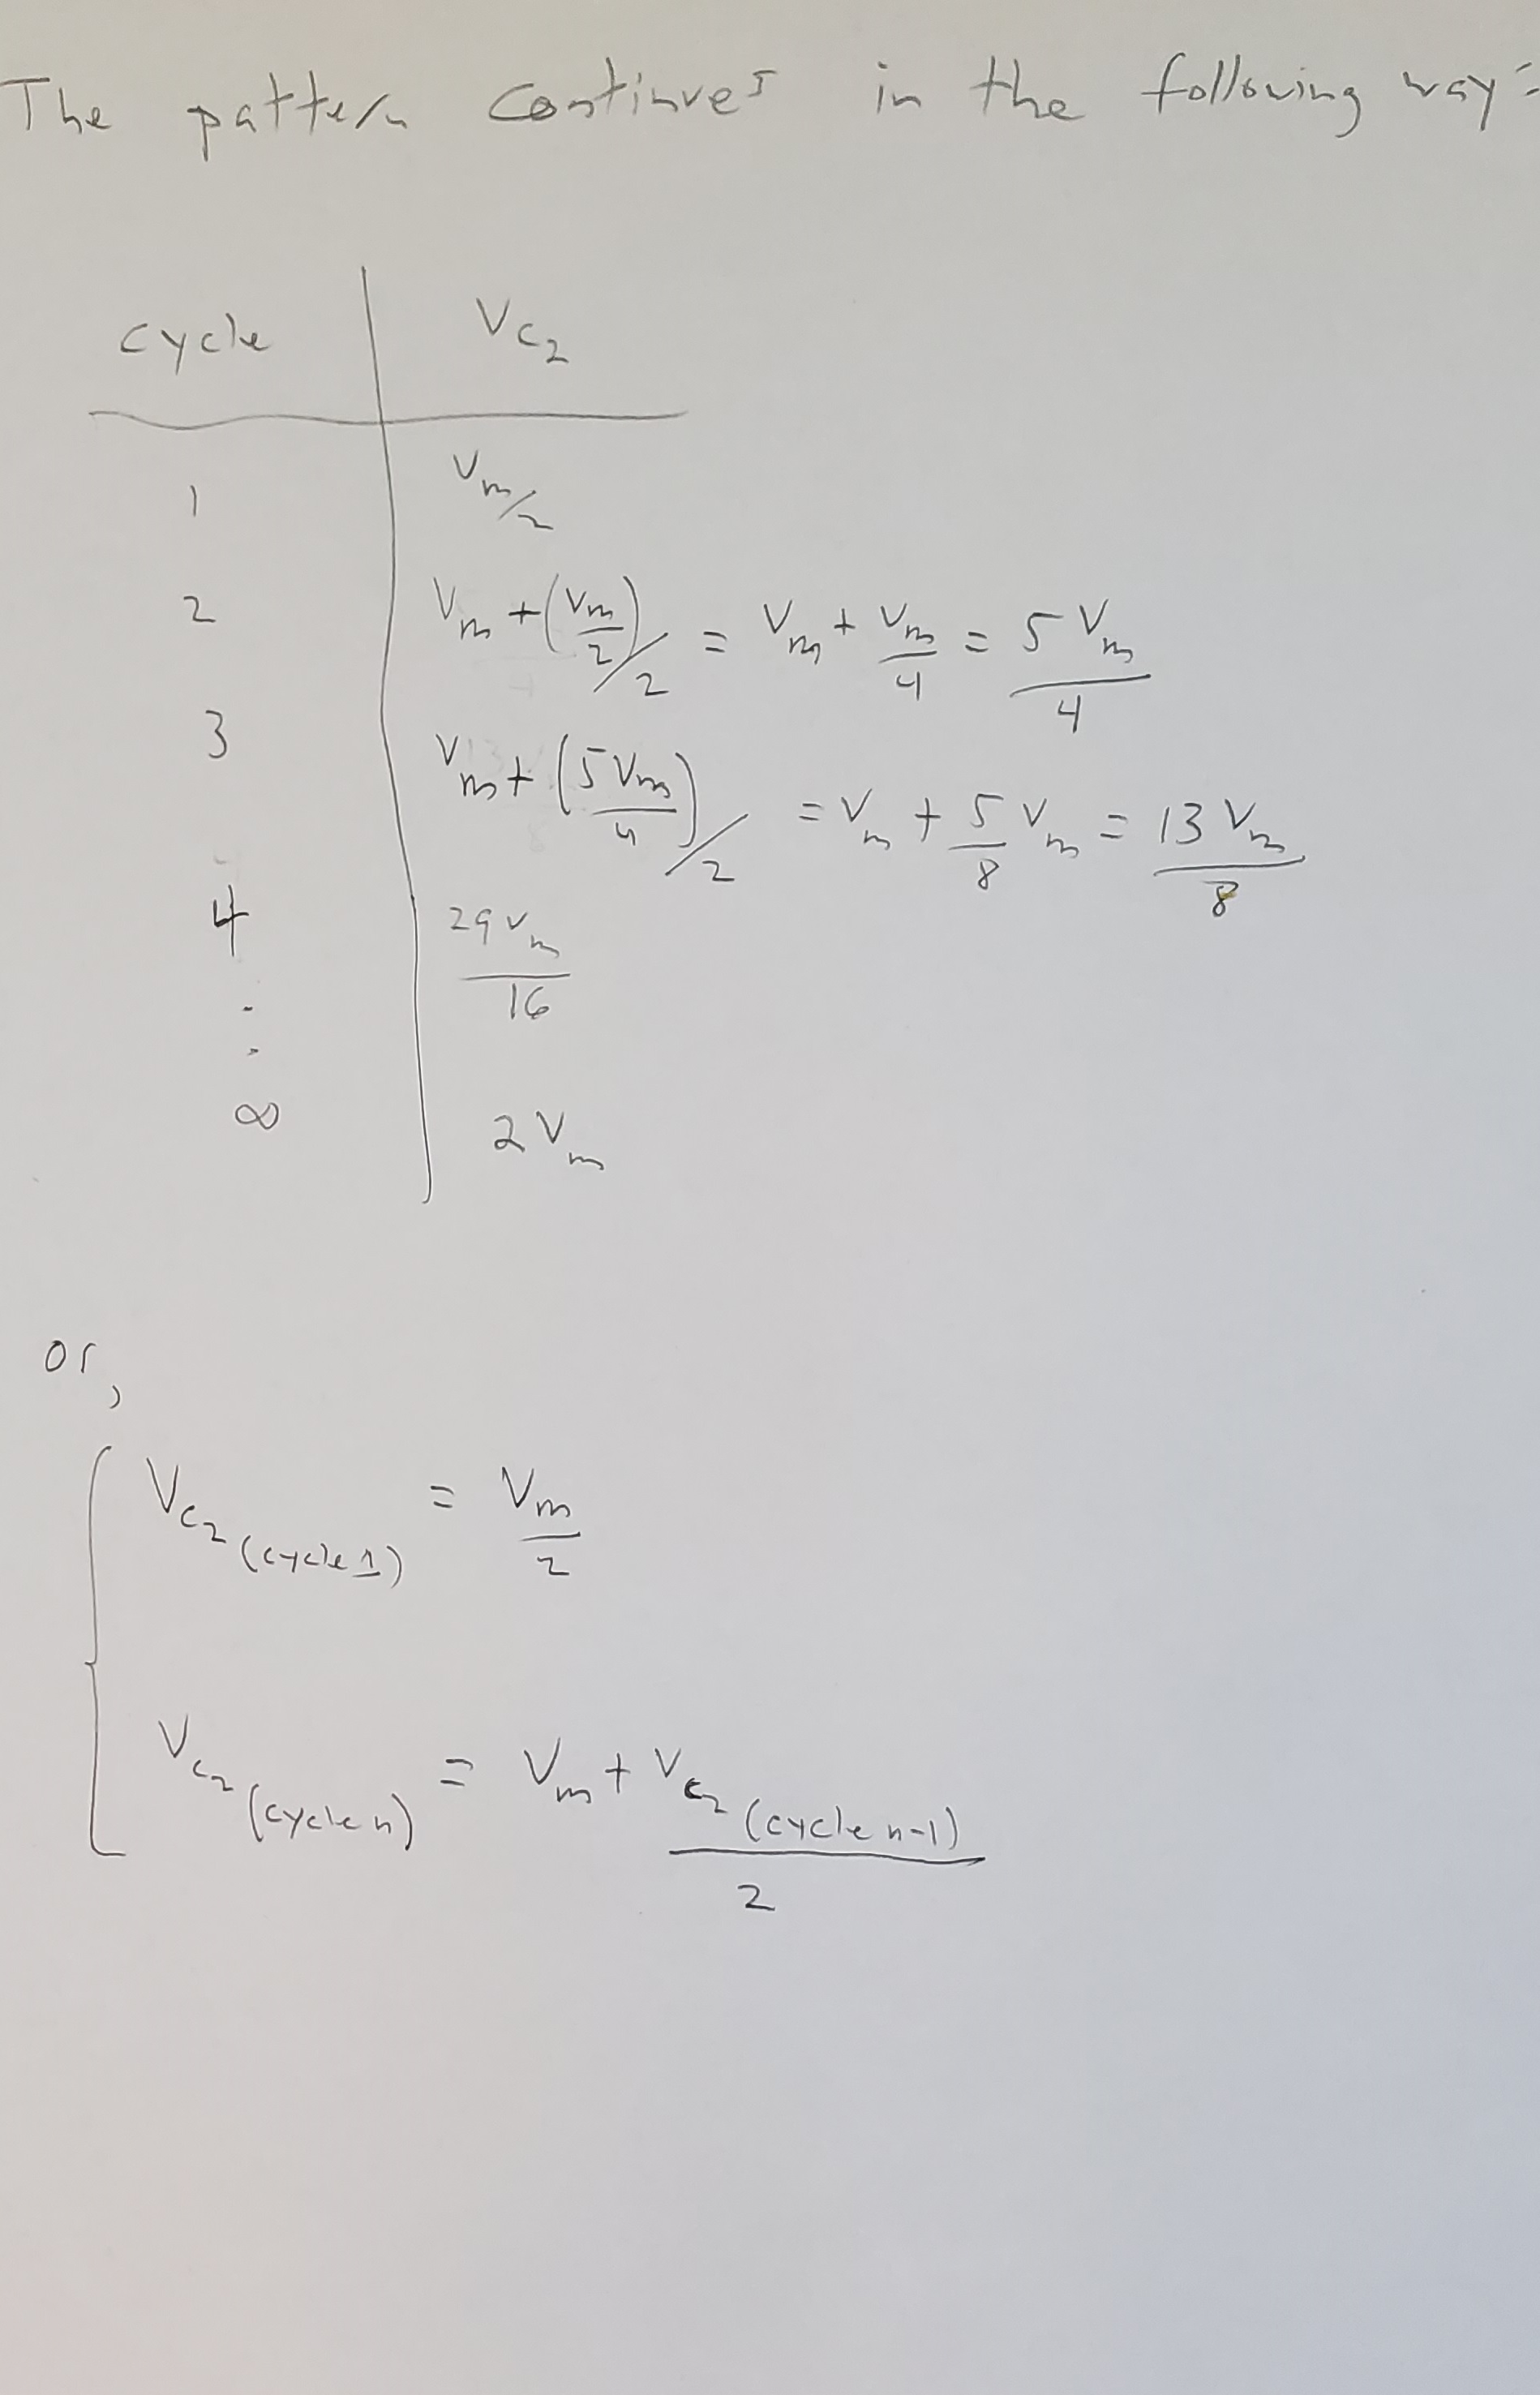 The pattern continues in the following way:
cycle | V_C2
1 | V_m/2
2 | V_m + (V_m/2)/2 = V_m + V_m/4 = 5V_m/4
3 | V_m + (5V_m/4)/2 = V_m + 5/8 V_m = 13V_m/8
4 | 29V_m/16
.
.
∞ | 2V_m
or,
V_C2 (cycle 1) = V_m/2
V_C2 (cycle n) = V_m + V_C2 (cycle n-1)/2